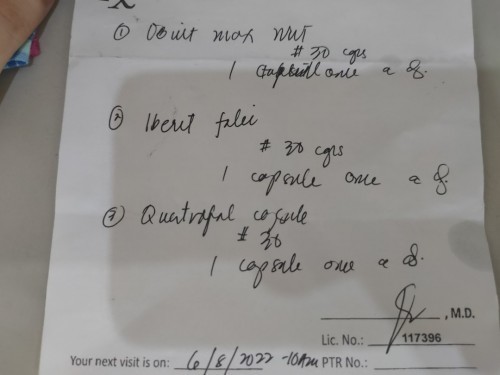 ① Obimt max Nut
# 30 cgrs
1 capsule once a d.
② Iberet folic
# 30 cgrs
1 capsule once a d.
③ Quatrofol capsule
# 30
1 capsule once a d.
, M.D.
Lic. No.: 117396
Your next visit is on: 6/8/2022 -10Am PTR No.: